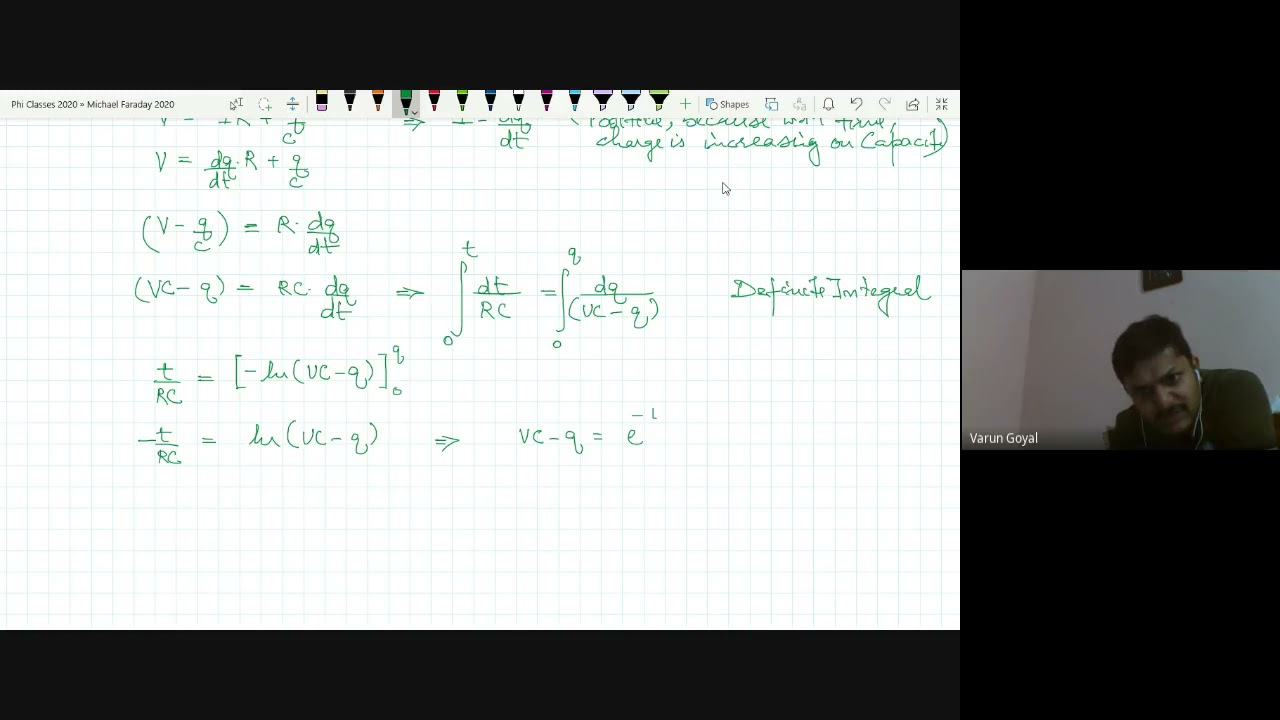 Phi Classes 2020 » Michael Faraday 2020 Shapes
V = IR + q/c ⇒ I = dq/dt (Positive, because with time,
charge is increasing on Capacit)
V = dq/dt · R + q/c
(V - q/c) = R · dq/dt
(VC - q) = RC · dq/dt ⇒ ∫₀ᵗ dt/RC = ∫₀^q dq/(VC - q) Definite Integral
t/RC = [-ln(VC - q)]₀^q
-t/RC = ln(VC - q) ⇒ VC - q = e^-
Varun Goyal